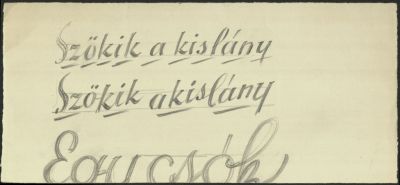 Szökik a kislány
Szökik a kislány
Egy csók